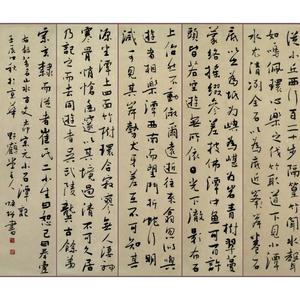 從小丘西行百二十步隔篁竹聞水聲
如鳴珮環心樂之伐竹取道下見小潭
水尤清冽全石以為底近岸卷石
底以出為坻為嶼為嵁為岩青樹翠蔓
蒙絡搖綴參差披拂潭中魚可百許
頭皆若空遊無所依日光下澈影布石
上佁然不動俶爾遠逝往來翕忽似與
遊者相樂潭西南而望斗折蛇行明
滅可見其岸勢犬牙差互不可知其
源坐潭上四面竹樹環合寂寥無人淒神
寒骨悄愴幽邃以其境過清不可久居
乃記之而去同遊者吳武陵龔古余弟
宗玄隸而從者崔氏二小生曰恕己曰奉壹
宗元小石潭記
秋於京華 書